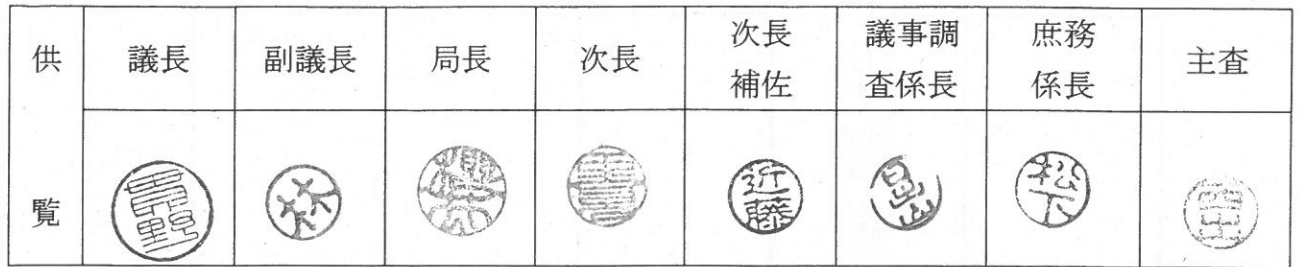 供覧
議長
副議長
局長
次長
次長補佐
議事調査係長
庶務係長
主査
近藤
松下